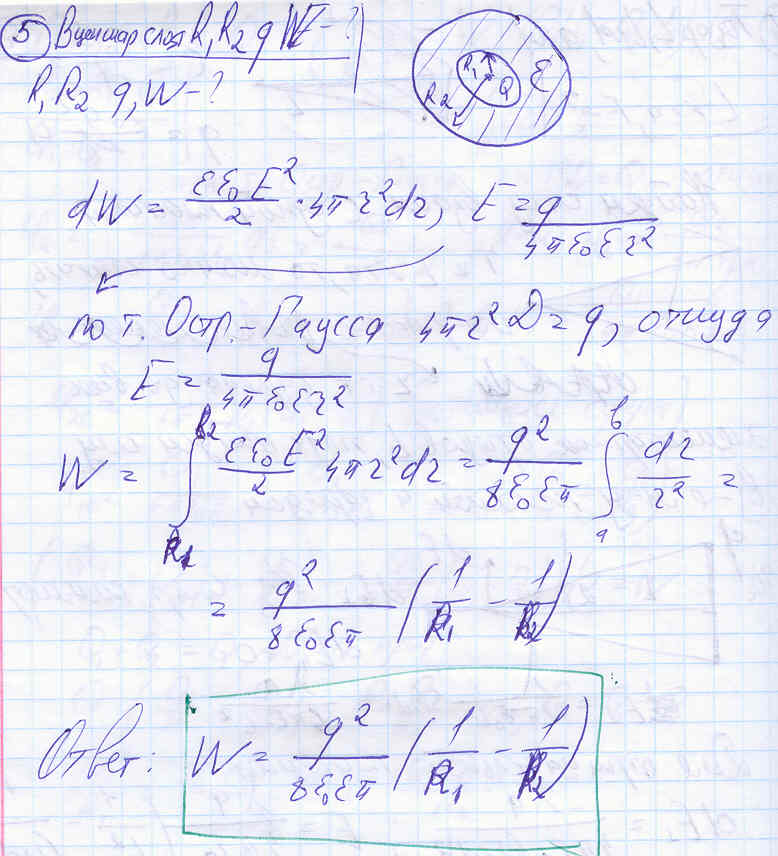 5 В цен шар слоя R, R2 q WE - ?
R, R2 q, W - ?
R1 Q ε
R2
dW = εε0E²/2 · 4πr²dr, E = q/4πε0εr²
по т. Остр.-Гаусса 4πr²D = q, откуда
E = q/4πε0εr²
W = ∫_{R1}^{R2} εε0E²/2 4πr²dr = q²/8ε0επ ∫_a^b dr/r² =
= q²/8ε0επ (1/R1 - 1/R2)
Ответ: W = q²/8ε0επ (1/R1 - 1/R2)